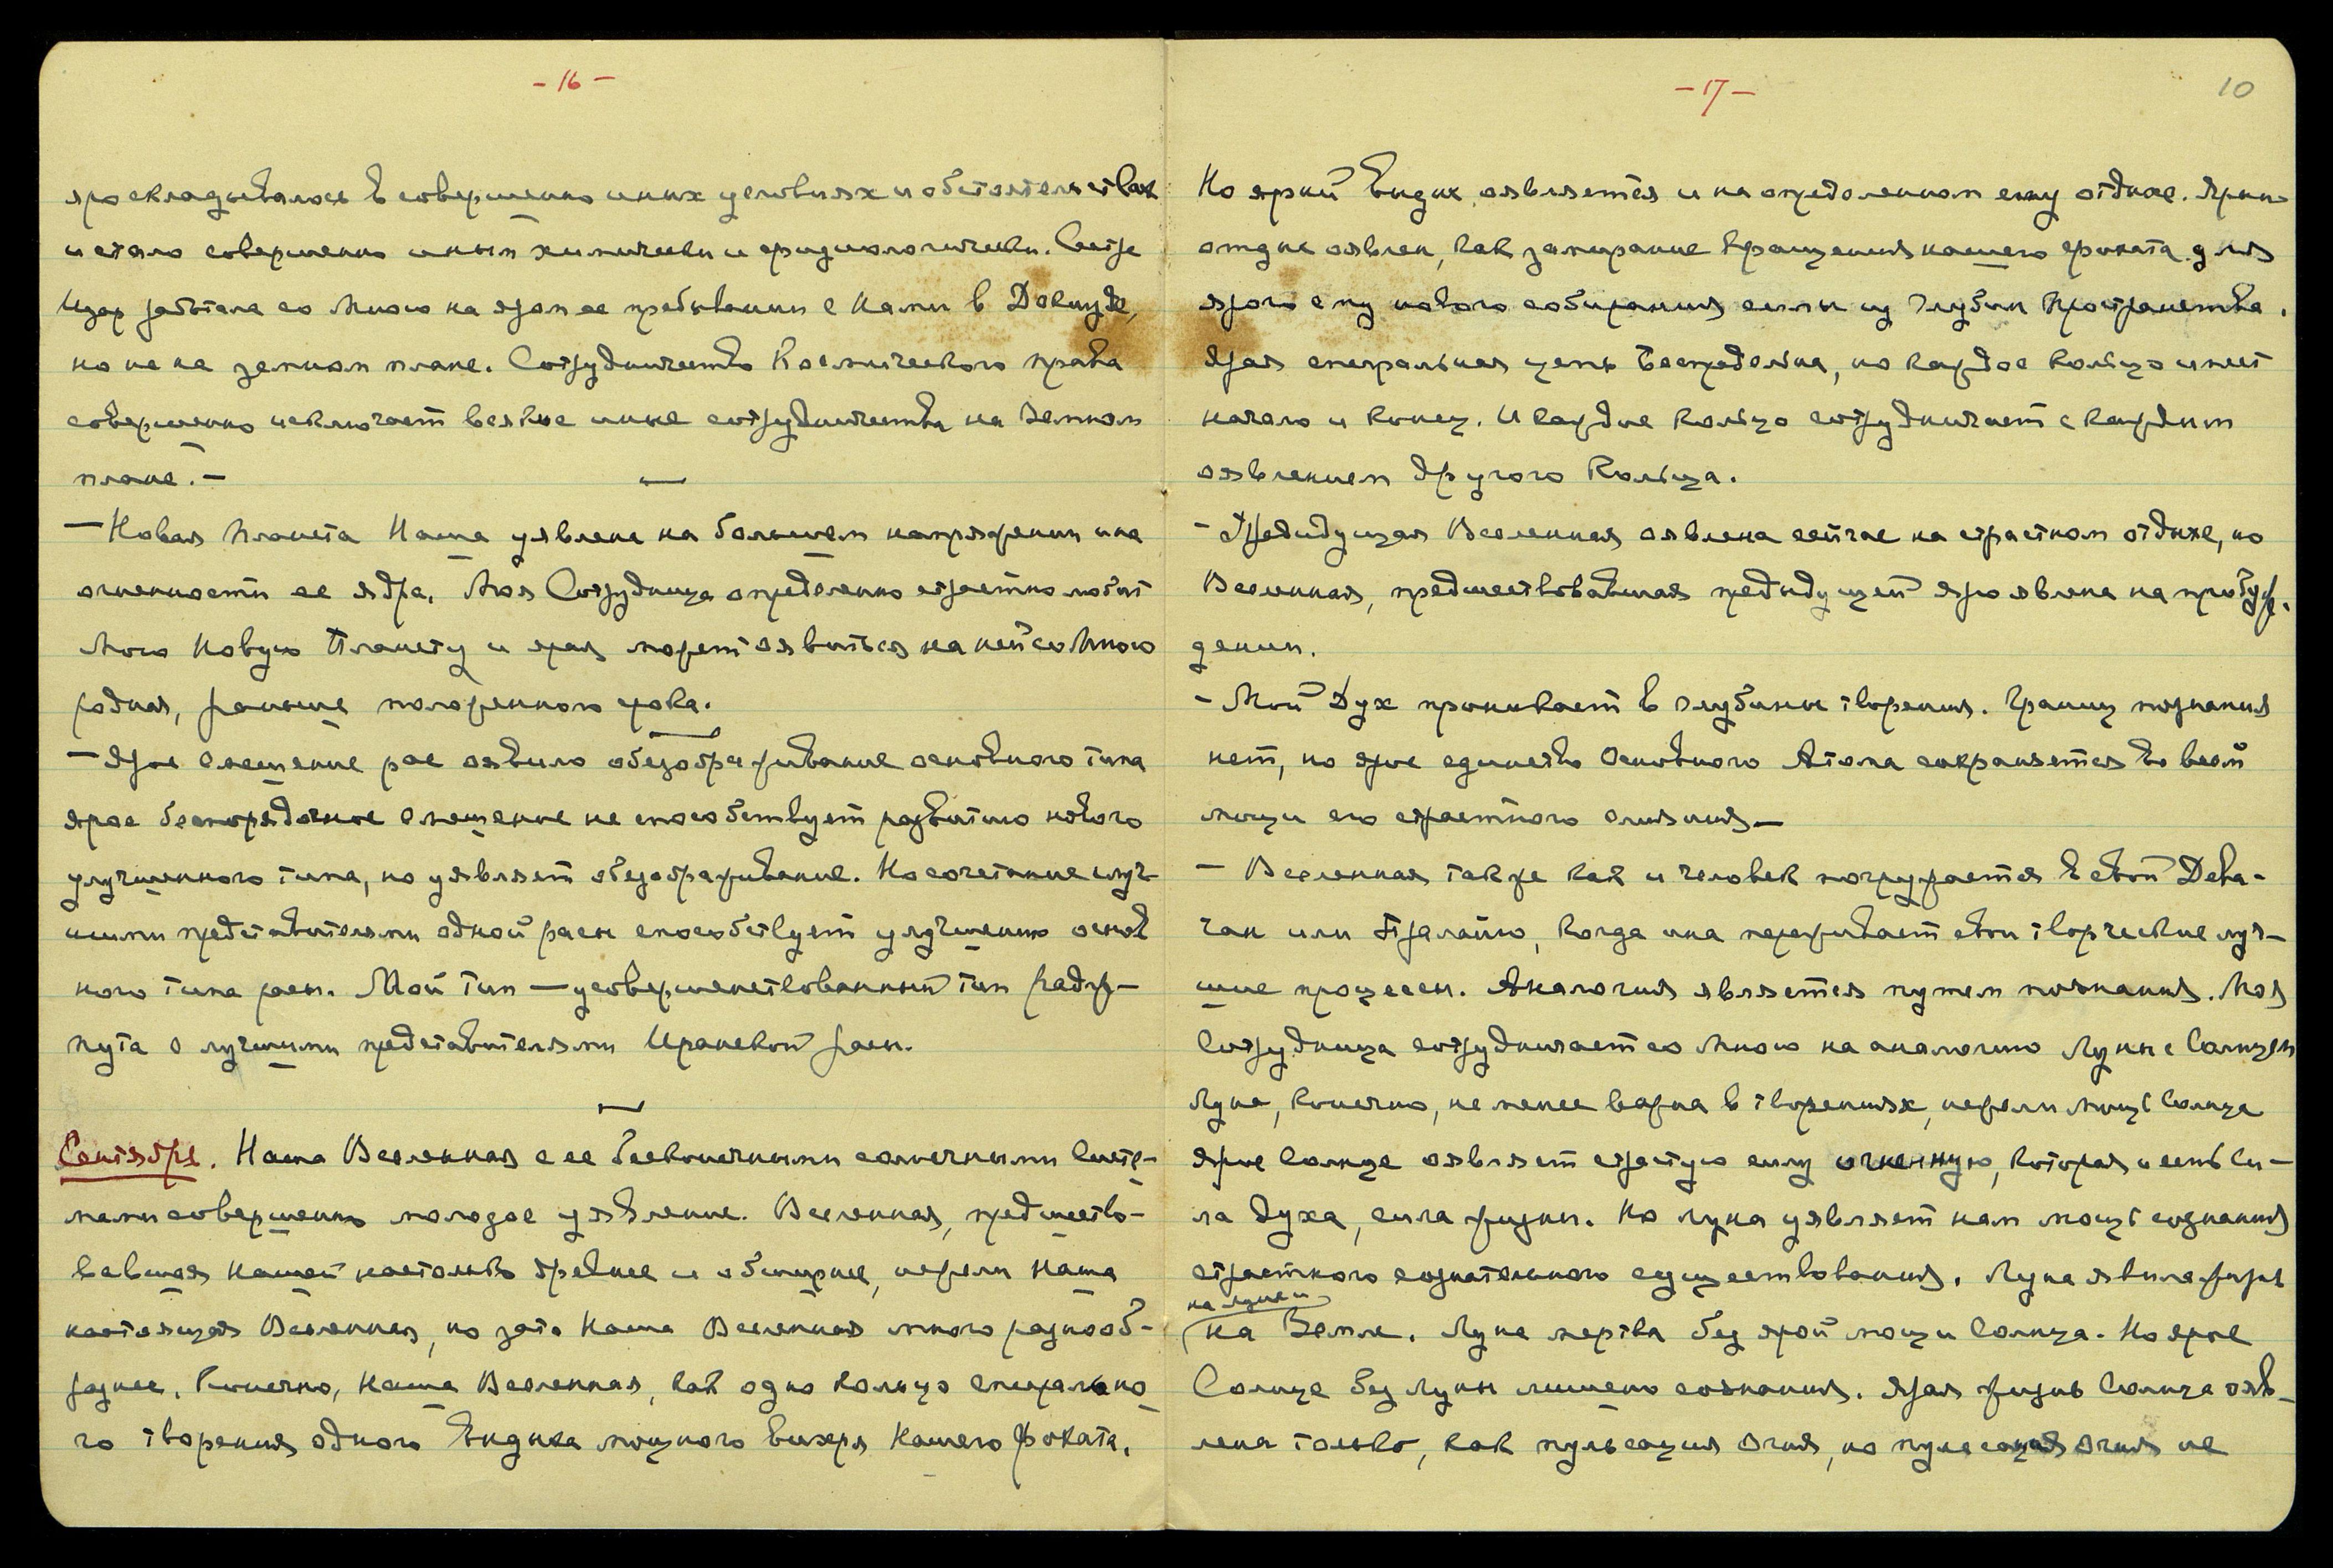 - 16 -
яро складывалось в совершенно иных условиях и обстоятельствах
и стало совершенно иным химически и физиологически. Сестра
Изар работала со Мною на яром ее пребывании с Нами в
но не на земном плане. Сотрудничество Космического права
совершенно исключает всякие иные сотрудничества на Земном
плане. —
— Новая Планета Наша уявлена на большем напряжении и на
огненности ее ядра. Моя Сотрудница определенно страстно любит
Мою Новую Планету и ярая может оявиться на ней со Мною
родная, раньше положенного срока.
— Ярое смешение рас оявило обезображивание основного типа
ярое беспорядочное смешение не способствует развитию нового
улучшенного типа, но уявляет обезображивание. Но сочетание луч-
шими представителями одной расы способствует улучшению основ
ного типа расы. Мой тип — усовершенствованный тип Радж-
пута с лучшими представителями Иранской расы.
Сентябрь. Наша Вселенная с ее бесконечными солнечными Систе-
мами совершенно молодое уявление. Вселенная, предшество-
вавшая нашей настолько древнее и обширнее, нежели наша
настоящая Вселенная, но зато Наша Вселенная много разнооб-
разнее. Конечно, Наша Вселенная, как одно кольцо спирально
го творения одного Выдыха мощного вихря Нашего Фохата.
- 17 -
10
Но яркий Выдых оявляется и на определенном ему отдыхе. Ярый
отдых оявлен, как замирание вращения нашего фохата для
ярого ему нового собирания силы из глубин пространства.
Ярая спиральная цепь Беспредельна, но каждое кольцо имеет
начало и конец. И каждое кольцо сотрудничает с каждым
оявлением другого Кольца.
- Предыдущая Вселенная оявлена сейчас на страстном отдыхе, но
Вселенная, предшествовавшая предыдущей яро явлена на пробуж-
дении.
- Мой Дух проникает в глубины творения. Границ познания
нет, но ярое единство Основного Атома сохраняется во всей
мощи его страстного слияния —
— Вселенная также как и человек погружается в свой Дева-
чан или Пралайю, когда она переживает свои творческие луч-
шие процессы. Аналогия является путем познания. Моя
Сотрудница сотрудничает со Мною на аналогию Луны с Солнцем
Луна, конечно, не менее важна в творениях, нежели мощь Солнца
Ярое Солнце оявляет страстную силу огненную, которая и есть Си-
ла Духа, сила жизни. Но луна уявляет нам мощь сознания
страстного сознательного существования. Луна явила жизнь
на нашей
на Земле. Луна мертва без ярой мощи Солнца. Но ярое
Солнце без Луны лишено сознания. Ярая жизнь Солнца ояв-
лена только, как пульсация Огня, но пульсация Огня не